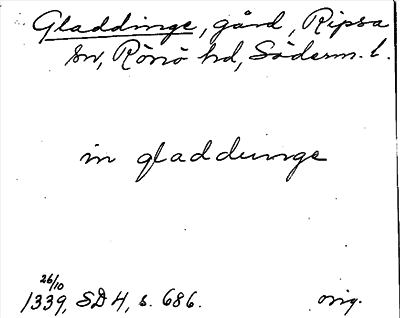 Gladdinge, gård, Ripsa
sn, Rönö hd, Söderm. l.
in gladdunge
26/10
1339, SD 4, s. 686. orig.